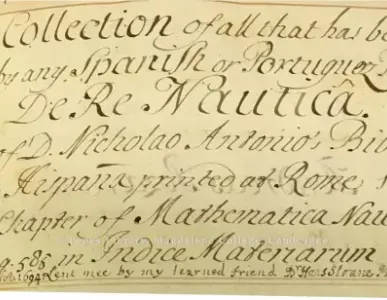 Collection of all that has be
by any Spanish or Portuguez
De Re Nauticâ.
of D. Nicholao Antonio's Bi
Hispana, printed at Rome,
Chapter of Mathematica Nau
g. 585 in Indice Materiarum
1694 Lent mee by my learned friend Dr Hans Sloane